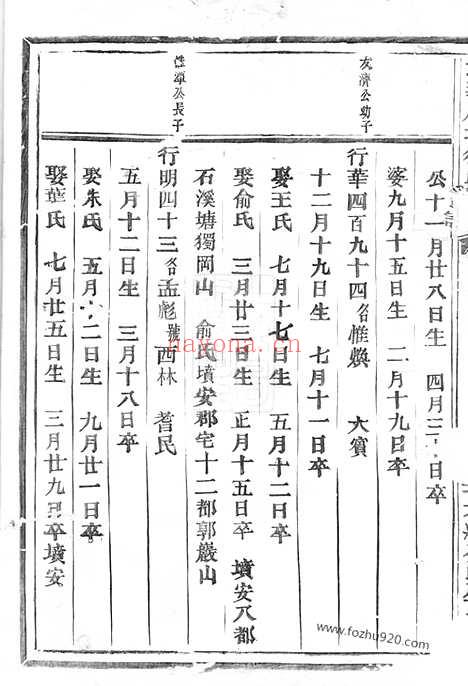 友濟公幼子
公十一月廿八日生　四月三日卒
婆九月十五日生　二月十九日卒
行華四百九十四名惟煥　大賓
十二月十九日生　七月十一日卒
娶王氏　七月十七日生　五月十二日卒
娶俞氏　三月廿三日生　正月十五日卒　墳安八都
石溪塘獨岡山　俞氏墳安郡宅十二都郭巖山
潭公長子
行明四十三名孟彪號西林　耆民
五月十二日生　三月十八日卒
娶朱氏　五月十二日生　九月廿一日卒
娶葉氏　七月廿五日生　三月廿九日卒墳安
nayona.cn
www.fozhu920.com